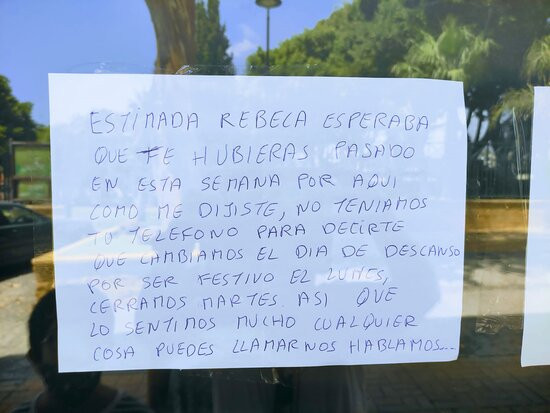 ESTIMADA REBECA ESPERABA
QUE TE HUBIERAS PASADO
EN ESTA SEMANA POR AQUI
COMO ME DIJISTE, NO TENIAMOS
TU TELEFONO PARA DECIRTE
QUE CAMBIAMOS EL DIA DE DESCANSO
POR SER FESTIVO EL LUNES,
CERRAMOS MARTES. ASI QUE
LO SENTIMOS MUCHO CUALQUIER
COSA PUEDES LLAMARNOS HABLAMOS...